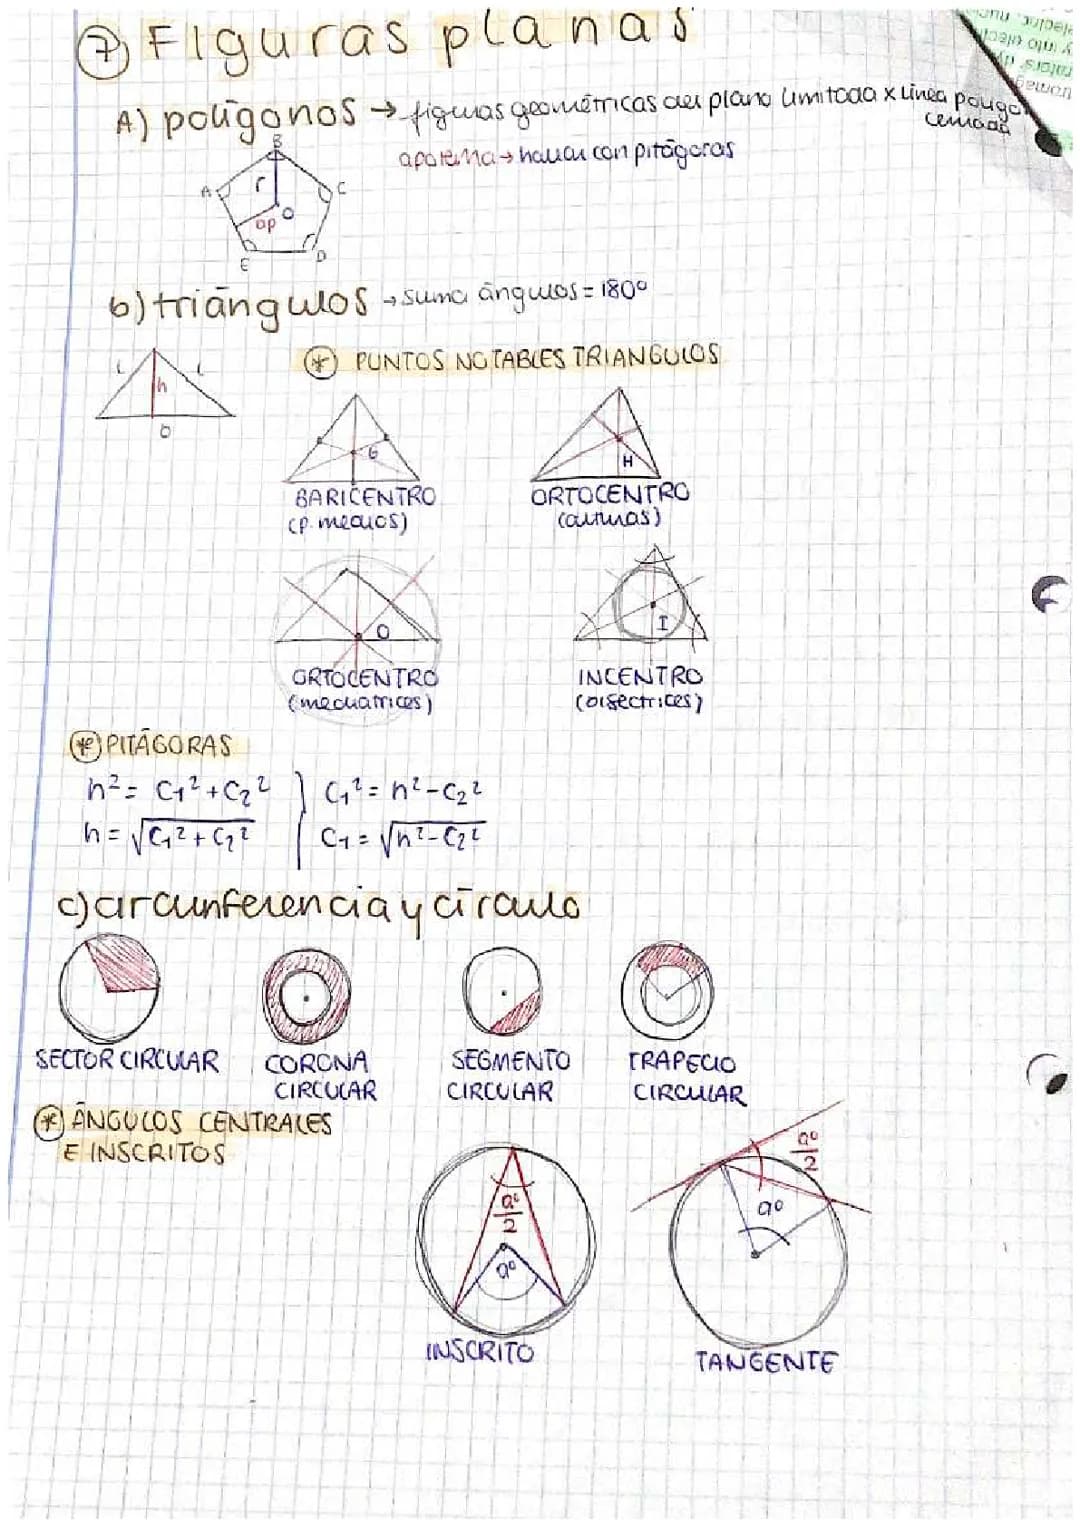 7 Figuras planas
A) polígonos → figuras geométricas del plano limitada x línea poligo
cerrada
apotema → hallar con pitágoras
B
A
r
C
O
ap
E
D
b) triángulos → suma ángulos = 180º
* PUNTOS NOTABLES TRIANGULOS
l
l
h
b
G
H
BARICENTRO
(p. medios)
ORTOCENTRO
(alturas)
O
I
ORTOCENTRO
(mediatrices)
INCENTRO
(bisectrices)
* PITÁGORAS
h² = C₁² + C₂² C₁² = h² - C₂²
h = √C₁² + C₂² C₁ = √h² - C₂²
c) circunferencia y círculo
SECTOR CIRCULAR
CORONA
CIRCULAR
SEGMENTO
CIRCULAR
TRAPECIO
CIRCULAR
* ÁNGULOS CENTRALES
E INSCRITOS
aº/2
aº
INSCRITO
aº/2
aº
TANGENTE